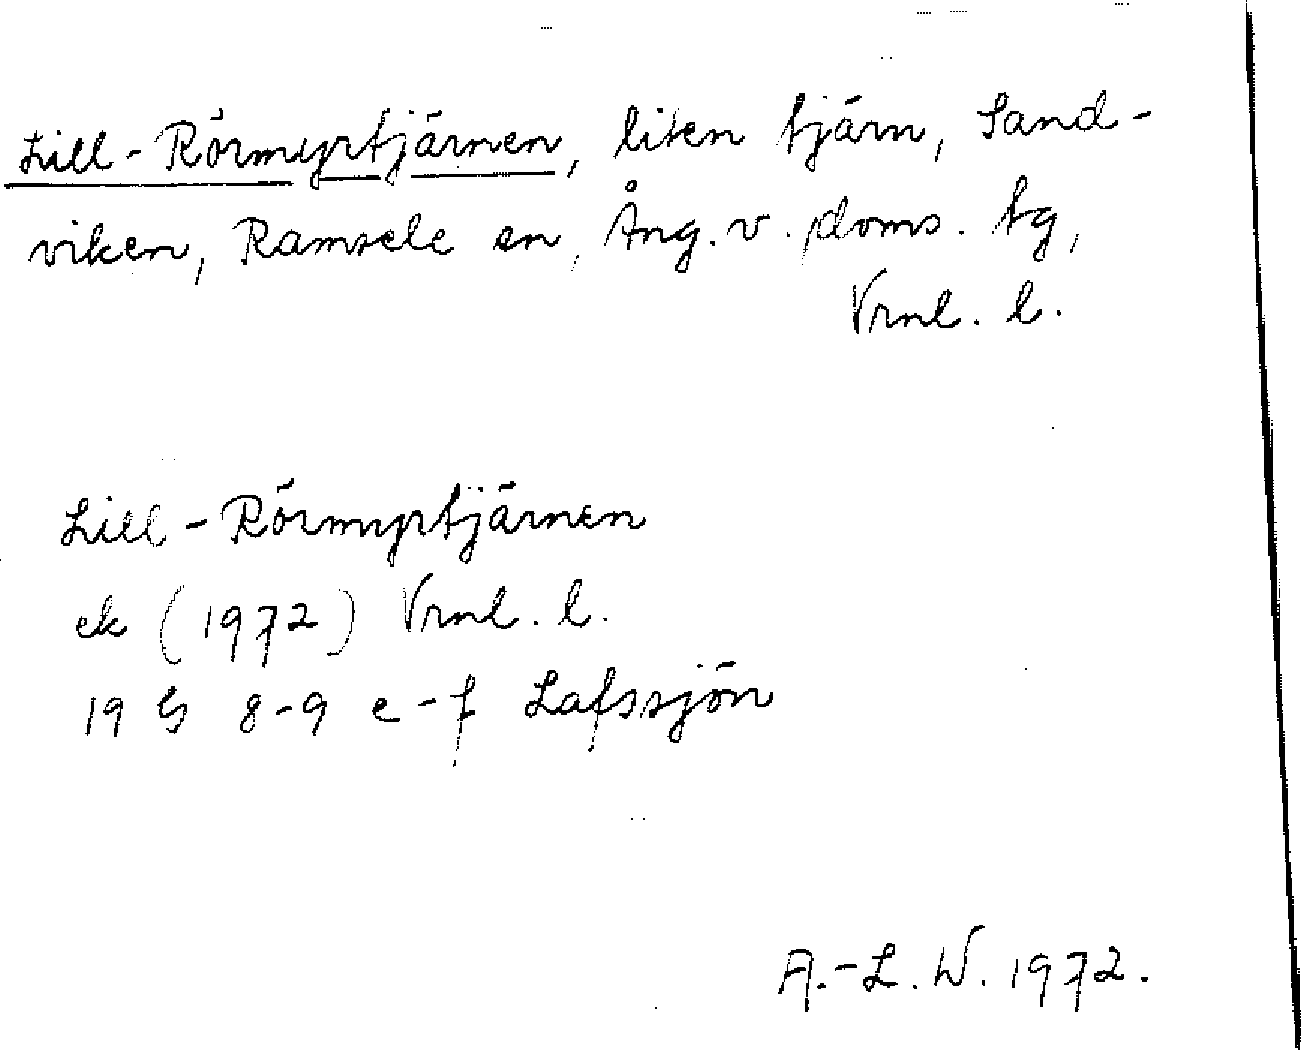 Lill-Rörmyrtjärnen, liten tjärn, Sand-
viken, Ramsele sn, Ång. v. doms. tg,
Vrnl. l.
Lill-Rörmyrtjärnen
ek (1972) Vrnl. l.
19 G 8-9 e-f Lafssjön
A.-L. W. 1972.